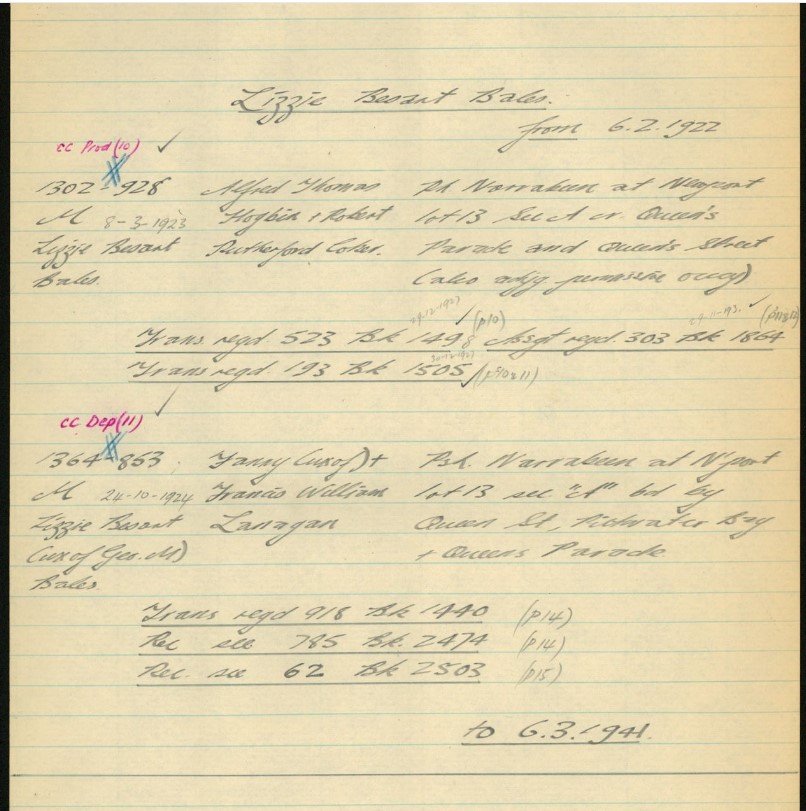 Lizzie Besant Bales.
from 6.2.1922
cc Prod (10) ✓
1302-928 Alfred Thomas Ph. Narrabeen at Newport
M 8-3-1923 Hogbin + Robert lot 13 Sec A cr. Queen's
Lizzie Besant Rutherford Coker. Parade and Queen's Street
Bales. (also adjg permissive occy)
(p10)
Trans. regd. 523 Bk 1498 Assgt regd. 303 Bk 1864
Trans regd. 193 Bk 1505 (p10 & 11)
cc Dep (11) ✓
1364-853 Fanny (wx of) + Psh. Narrabeen at N'port
M 24-10-1924 Francis William lot 13 sec "A" bd by
Lizzie Besant Lanagan Queen St, Pittwater Bay
(wx of Geo. M) + Queens Parade
Bales.
Trans regd 918 Bk 1440 (p14)
Rec see 785 Bk. 2474 (p14)
Rec. see 62 Bk 2503 (p15)
to 6.3.1941.